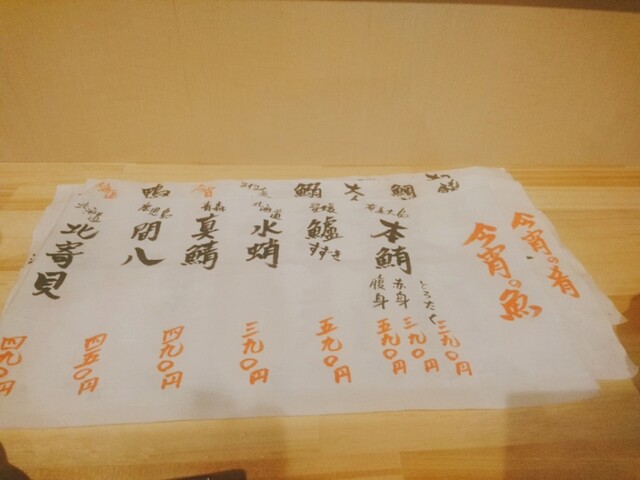 今宵の肴
今宵の魚
本鮪
とろたく 三九〇円
赤身 三九〇円
腹身 五九〇円
愛媛
鱸
すずき
五九〇円
北海道
水蛸
三九〇円
青森
真鯖
四九〇円
間八
四五〇円
北海道
北寄貝
四九〇円